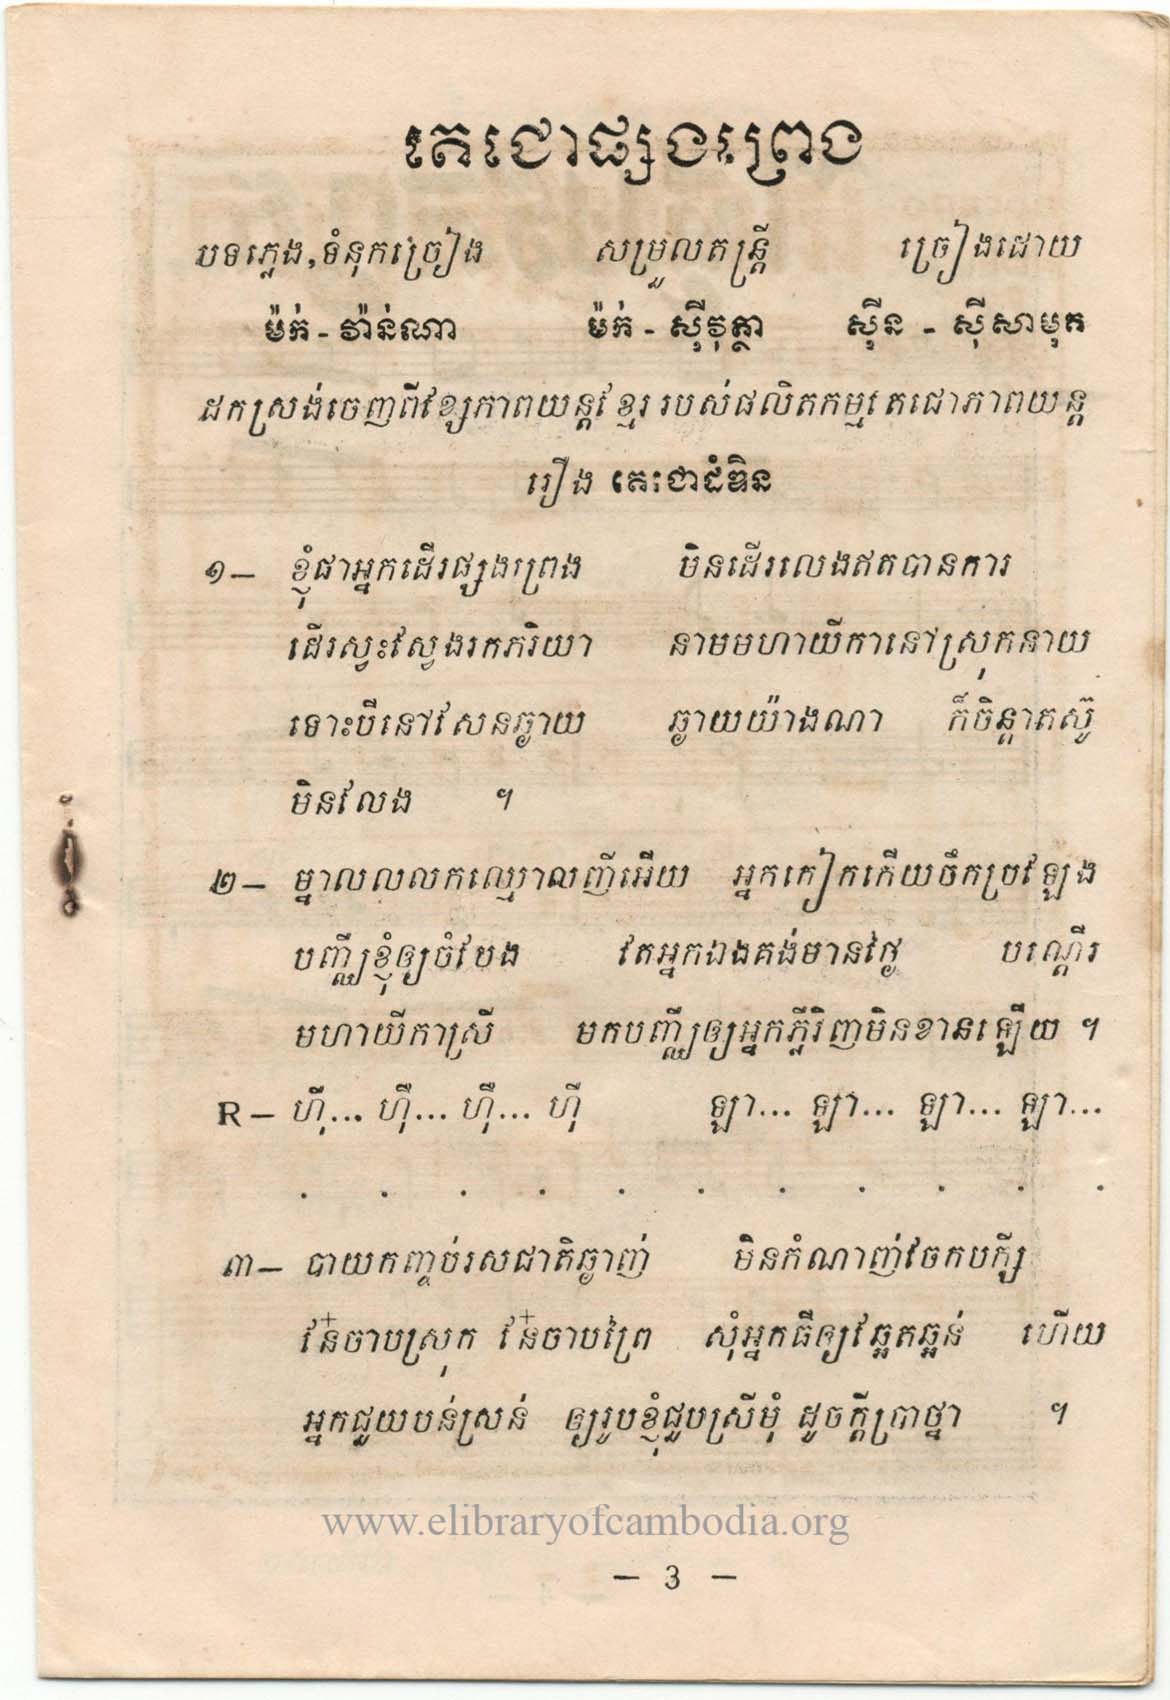 តេជោផ្សងព្រេង
បទភ្លេង,ទំនុកច្រៀង សម្រួលតន្ត្រី ច្រៀងដោយ
ម៉ក់ - វ៉ាន់ណា ម៉ក់ - ស៊ីវុត្ថា ស៊ីន - ស៊ីសាមុត
ដកស្រង់ចេញពីខ្សែភាពយន្តខ្មែរ របស់ផលិតកម្មតេជោភាពយន្ត
រឿង តេះជាដំឌិន
១— ខ្ញុំជាអ្នកដើរផ្សងព្រេង មិនដើរលេងឥតបានការ
ដើរស្វះស្វែងរកភរិយា នាមមហាយីកានៅស្រុកនាយ
ទោះបីនៅសែនឆ្ងាយ ឆ្ងាយយ៉ាងណា ក៏ចិន្តាតស៊ូ
មិនលែង ។
២— ម្នាលលលកឈ្មោលញីអើយ អ្នកកៀកកើយចឹកប្រឡែង
បញ្ឈឺខ្ញុំឲ្យចំបែង តែអ្នកឯងគង់មានថ្ងៃ បណ្ដើរ
មហាយីកាស្រី មកបញ្ឈឺឲ្យអ្នកភ្លីវិញមិនខានឡើយ ។
R— ហ៊ី... ហ៊ឺ... ហ៊ឺ... ហ៊ី ឡា... ឡា... ឡា... ឡា...
. . . . . . . . . . .
៣— បាយកញ្ចប់រសជាតិឆ្ងាញ់ មិនកំណាញ់ចែកបក្សី
នែ៎ចាបស្រុក នែ៎ចាបព្រៃ សុំអ្នកធីឲ្យឆ្អែតឆ្អន់ ហើយ
អ្នកជួយបន់ស្រន់ ឲ្យរូបខ្ញុំជួបស្រីមុំ ដូចក្ដីប្រាថ្នា ។
www.elibraryofcambodia.org
— 3 —